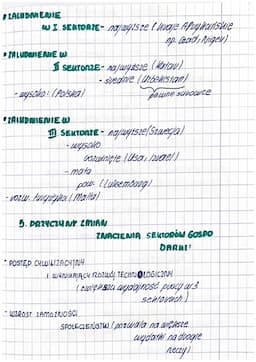 • ZALUDNIENIE
W I SEKTORZE - najwyższe (kraje Afrykańskie
np. Czad, Niger)
• ZALUDNIENIE W
II SEKTORZE - najwyższe (Katar)
- średnie (Uzbekistan)
- wysokie (Polska)
paliwa surowce
• ZALUDNIENIE W
III SEKTORZE - najwyższe (Szwecja)
- wysoko
rozwinięte (Usa, Izrael)
- mała
pow. (Luksemburg)
- rozw. turystyka (Malta)
5. PRZYCZYNY ZMIAN
ZNACZENIA SEKTORÓW GOSPO
DARKI:
• POSTĘP CYWILIZACYJNY
I WYNIKAJĄCY ROZWÓJ TECHNOLOGICZNY
(zwiększa wydajność pracy w 3
sektorach)
• WZROST ZAMOŻNOŚCI
SPOŁECZEŃSTW (pozwala na większe
wydatki na drogie
rzeczy)